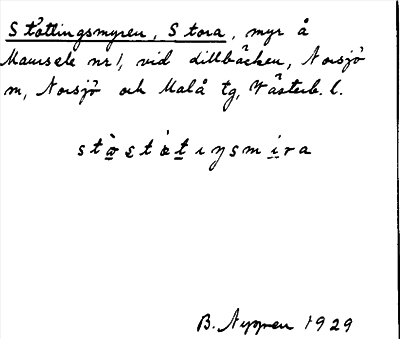 Stöttingsmyren, Stora, myr å
Maursele nr 1, vid Lillbäcken, Norsjö
sn, Norsjö och Malå tg, Västerb. l.
B. Nygren 1929